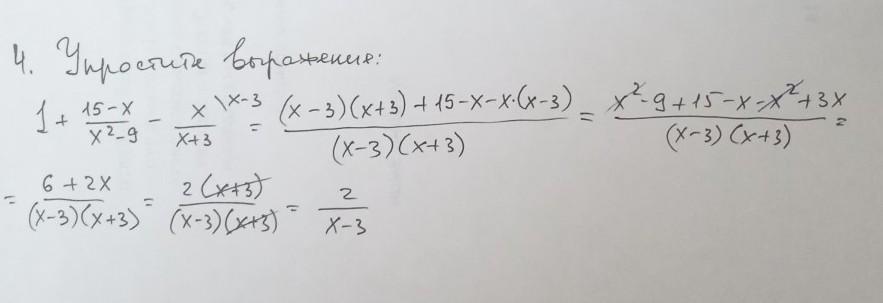 4. Упростите выражения:
1 + (15-x)/(x²-9) - x/(x+3) \x-3 = ((x-3)(x+3)+15-x-x·(x-3))/((x-3)(x+3)) = (x²-9+15-x-x²+3x)/((x-3)(x+3)) =
= (6+2x)/((x-3)(x+3)) = 2(x+3)/((x-3)(x+3)) = 2/(x-3)